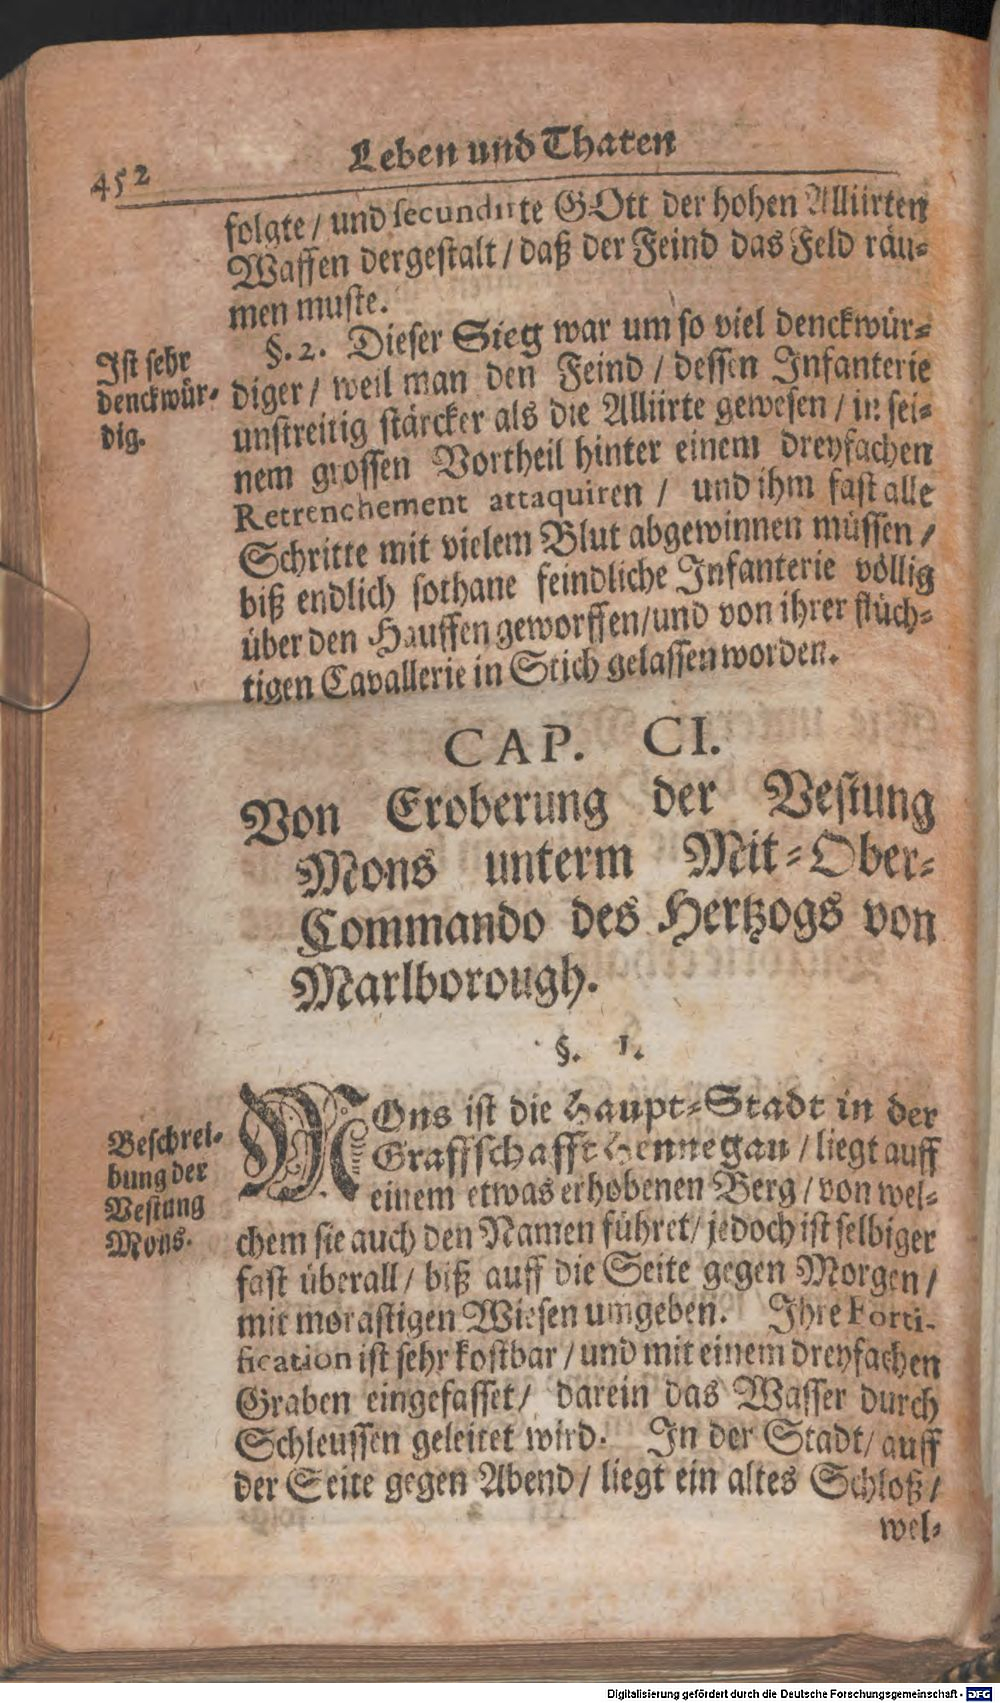 452
Leben und Thaten
folgte / und secundirte GOtt der hohen Alliirten
Waffen dergestalt / daß der Feind das Feld räu-
men muste.
Ist sehr
denckwür-
dig.
§. 2. Dieser Sieg war um so viel denckwür-
diger / weil man den Feind / dessen Infanterie
unstreitig stärcker als die Alliirte gewesen / in sei-
nem grossen Vortheil hinter einem dreyfachen
Retrenchement attaquiren / und ihm fast alle
Schritte mit vielem Blut abgewinnen müssen /
biß endlich sothane feindliche Infanterie völlig
über den Hauffen geworffen / und von ihrer flüch-
tigen Cavallerie in Stich gelassen worden.
CAP. CI.
Von Eroberung der Vestung
Mons unterm Mit-Ober-
Commando des Hertzogs von
Marlborough.
§. 1.
Beschrei-
bung der
Vestung
Mons.
MOns ist die Haupt-Stadt in der
Graffschafft Hennegau / liegt auff
einem etwas erhobenen Berg / von wel-
chem sie auch den Namen führet / jedoch ist selbiger
fast überall / biß auff die Seite gegen Morgen /
mit morastigen Wiesen umgeben. Ihre Forti-
fication ist sehr kostbar / und mit einem dreyfachen
Graben eingefasset / darein das Wasser durch
Schleussen geleitet wird. In der Stadt / auff
der Seite gegen Abend / liegt ein altes Schloß /
wel-
Digitalisierung gefördert durch die Deutsche Forschungsgemeinschaft - DFG